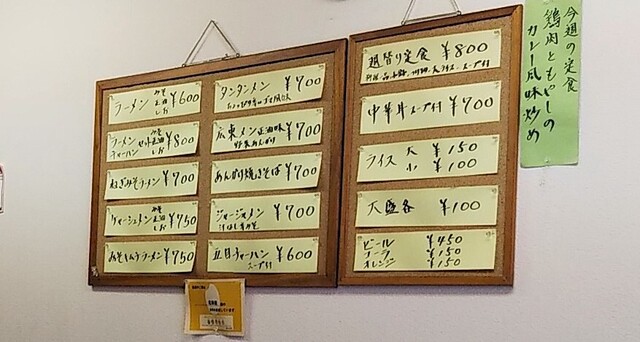 ラーメン みそ 正油 しお ¥600
ラーメン チャーハン セット みそ 正油 しお ¥800
ねぎみそラーメン ¥700
チャーシューメン みそ 正油 しお ¥750
みそキムチラーメン ¥750
タンタンメン ¥700
広東メン 正油味 ¥700
野菜あんかけ
あんかけ焼きそば ¥700
ジャージャメン ¥700
五目チャーハン ¥600
スープ付
週替り定食 ¥800
中華丼 スープ付 ¥700
ライス 大 ¥150
小 ¥100
大盛各 ¥100
ビール ¥450
コーラ ¥150
オレンジ ¥150
今週の定食
鶏肉ともやしの
カレー風味炒め